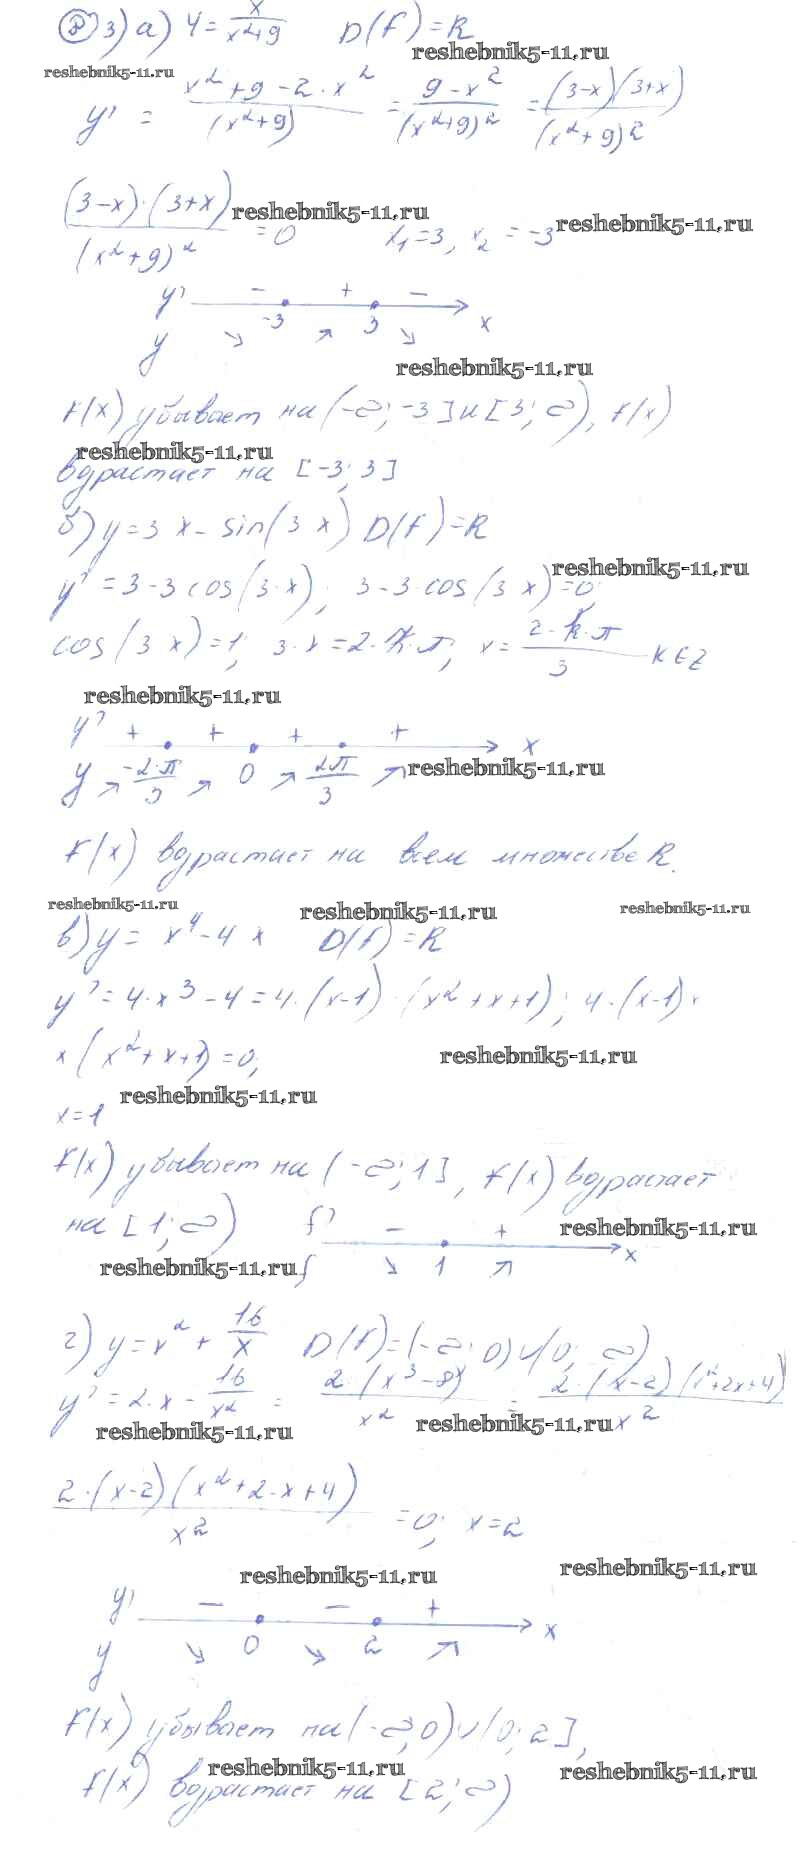 8 3) а) y = x/(x²+9) D(f)=R
reshebnik5-11.ru
reshebnik5-11.ru
y' = (x²+9-2·x²)/(x²+9) = (9-x²)/(x²+9)² = (3-x)(3+x)/(x²+9)²
(3-x)·(3+x)/(x²+9)² = 0 x₁=3, x₂=-3
reshebnik5-11.ru
reshebnik5-11.ru
y' - + - x
y -3 3
reshebnik5-11.ru
f(x) убывает на (-∞; -3] и [3; ∞), f(x)
reshebnik5-11.ru
возрастает на [-3; 3]
б) y=3x-sin(3x) D(f)=R
reshebnik5-11.ru
y' = 3-3cos(3·x); 3-3·cos(3x)=0;
cos(3x)=1; 3·x=2·k·π; x= 2·k·π/3 k∈Z
reshebnik5-11.ru
y' + + + + x
y -2·π/3 0 2π/3
reshebnik5-11.ru
f(x) возрастает на всем множестве R.
reshebnik5-11.ru
reshebnik5-11.ru
reshebnik5-11.ru
в) y = x⁴-4x D(f)=R
y' = 4·x³-4=4·(x-1)·(x²+x+1); 4·(x-1)×
×(x²+x+1)=0;
reshebnik5-11.ru
reshebnik5-11.ru
x=1
f(x) убывает на (-∞; 1], f(x) возрастает
на [1; ∞) f' - + x
reshebnik5-11.ru
reshebnik5-11.ru
f 1
г) y=x²+16/x D(f)=(-∞; 0)∪(0; ∞)
y' = 2·x - 16/x² = 2·(x³-8)/x² = 2·(x-2)(x²+2x+4)/x²
reshebnik5-11.ru
reshebnik5-11.ru
2·(x-2)(x²+2·x+4)/x² =0; x=2
reshebnik5-11.ru
reshebnik5-11.ru
y' - - + x
y 0 2
f(x) убывает на (-∞; 0)∪(0; 2],
reshebnik5-11.ru
reshebnik5-11.ru
f(x) возрастает на [2; ∞)